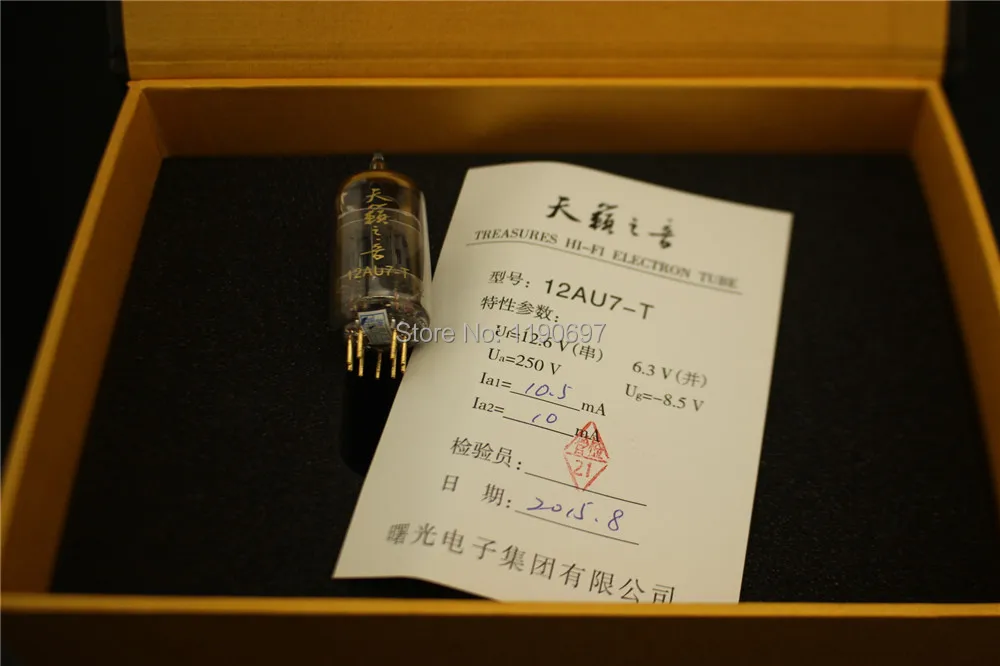 天
籟
之
音
12AU7-T
天籟之音
TREASURES HI-FI ELECTRON TUBE
型号: 12AU7-T
特性参数:
Uf=12.6 V(串) 6.3 V(并)
Ua=250 V Ug=-8.5 V
Ia1= 10.5 mA
Ia2= 10 mA
检验员:
21
日 期: 2015.8
曙光电子集团有限公司
Store No: 1190697